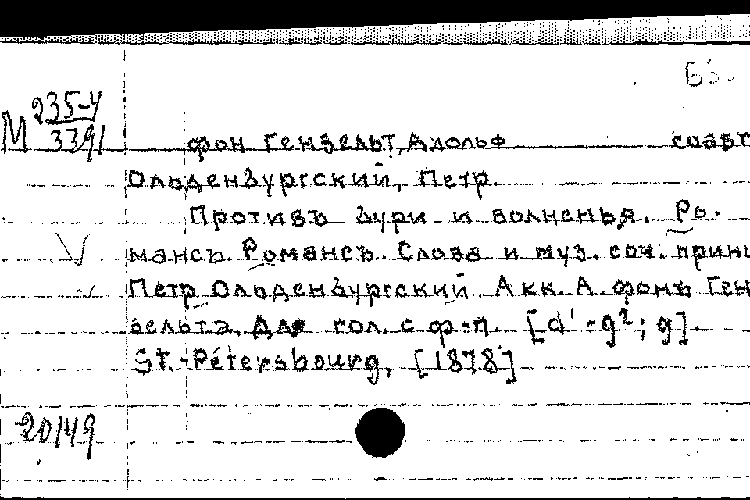 63
М 235-4
3391
фон Гензельт, Адольф соавт
Ольденбургский, Петр
Противъ бури и волненья. Ро-
мансъ. Романсъ. Слова и муз. соч. принц
Петр Ольденбургский Акк. А. фонъ Ген
зельта. Для гол. с ф-п. [d¹-g²; g].
St.-Pétersbourg, [1878]
20149